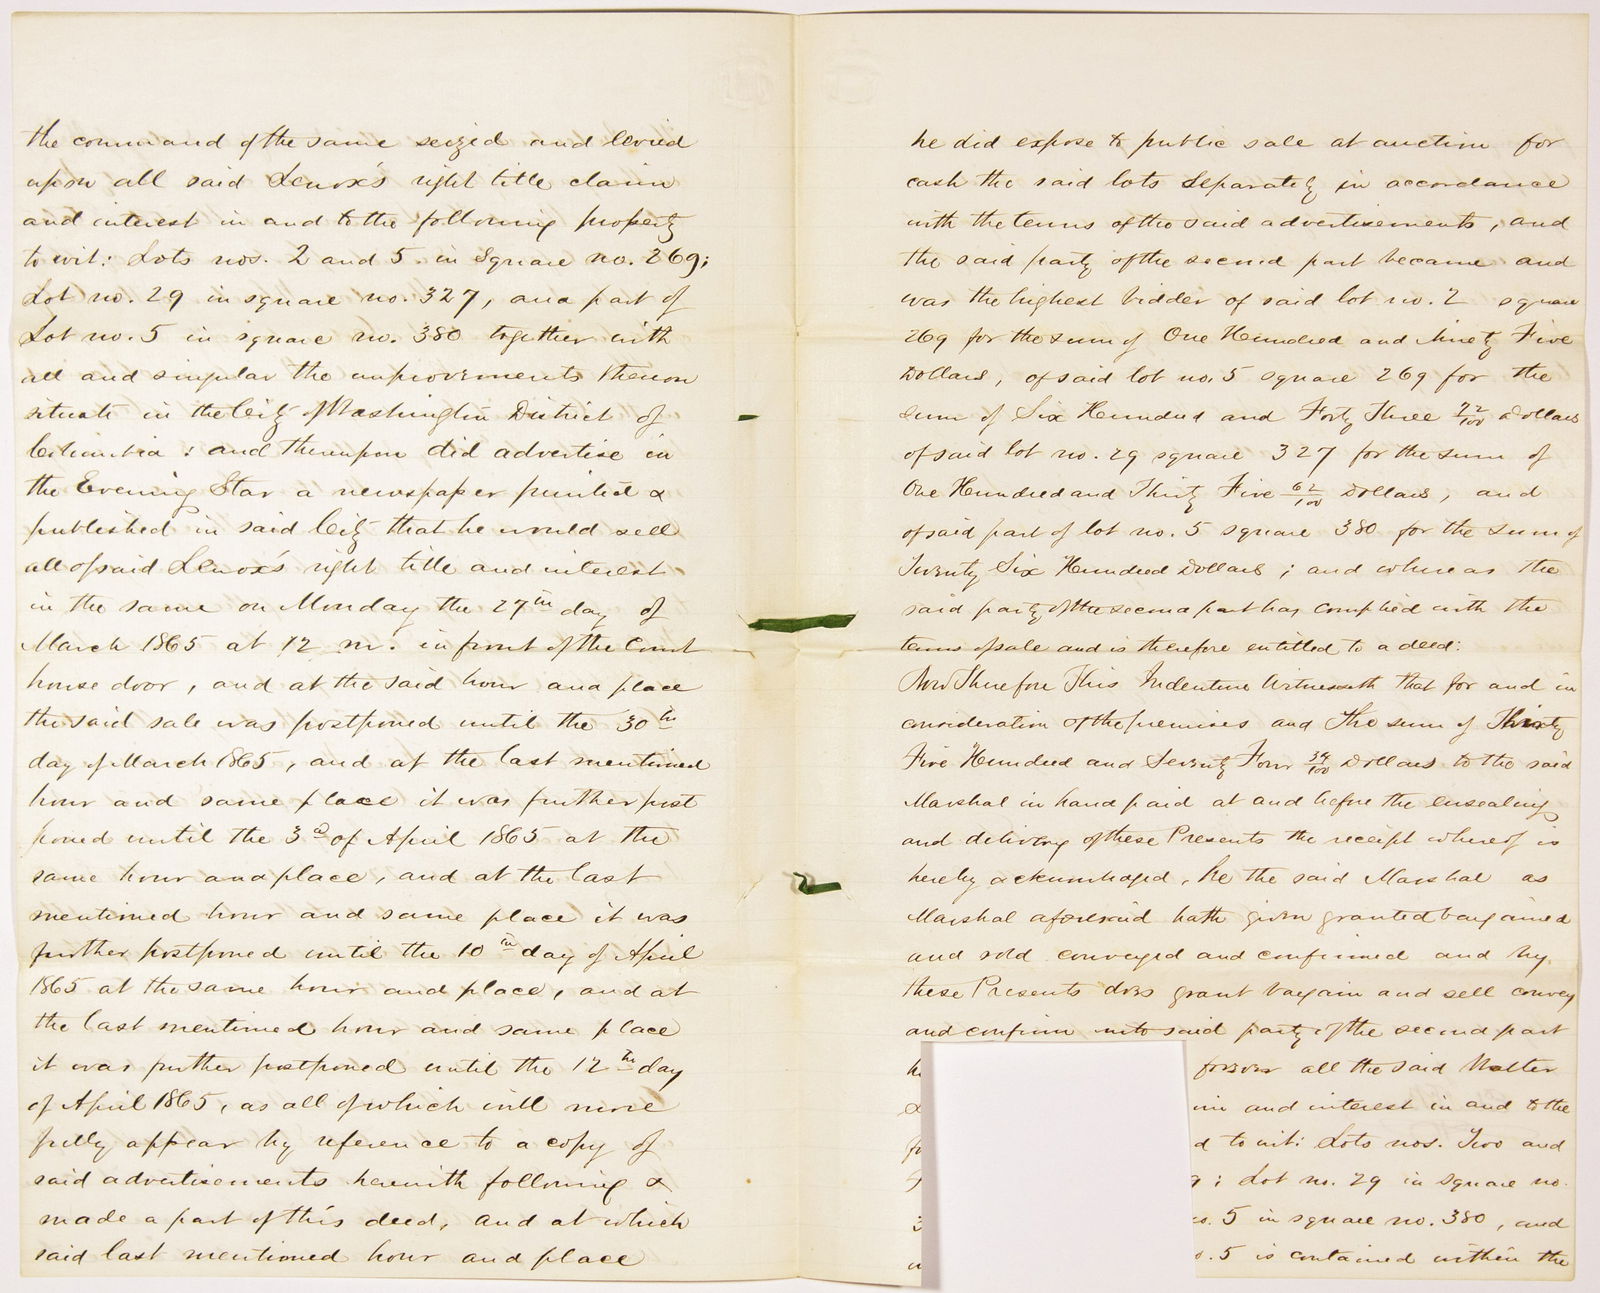 the command of the same seized and levied
upon all said Lenox's right title claim
and interest in and to the following property
to wit: Lots nos. 2 and 5 in Square no. 269;
Lot no. 29 in square no. 327, and part of
Lot no. 5 in square no. 380 together with
all and singular the improvements thereon
situate in the City of Washington District of
Columbia; and thereupon did advertise in
the Evening Star a newspaper printed &
published in said City that he would sell
all of said Lenox's right title and interest
in the same on Monday the 27th day of
March 1865 at 12 m. in front of the Court
house door, and at the said hour and place
the said sale was postponed until the 30th
day of March 1865, and at the last mentioned
hour and same place it was further post
poned until the 3d of April 1865 at the
same hour and place, and at the last
mentioned hour and same place it was
further postponed until the 10th day of April
1865 at the same hour and place, and at
the last mentioned hour and same place
it was further postponed until the 12th day
of April 1865, as all of which will more
fully appear by reference to a copy of
said advertisements herewith following &
made a part of this deed, and at which
said last mentioned hour and place
he did expose to public sale at auction for
cash the said lots separately in accordance
with the terms of the said advertisements, and
the said party of the second part became and
was the highest bidder of said lot no. 2 square
269 for the sum of One Hundred and Ninety Five
Dollars, of said lot no. 5 square 269 for the
sum of Six Hundred and Forty Three 72/100 Dollars
of said lot no. 29 square 327 for the sum of
One Hundred and Thirty Five 62/100 Dollars, and
of said part of lot no. 5 square 380 for the sum of
Twenty Six Hundred Dollars; and whereas the
said party of the second part has complied with the
terms of sale and is therefore entitled to a deed:
Now Therefore This Indenture Witnesseth that for and in
consideration of the premises and the sum of Thirty
Five Hundred and Seventy Four 34/100 Dollars to the said
Marshal in hand paid at and before the ensealing
and delivery of these Presents the receipt whereof is
hereby acknowledged, he the said Marshal as
Marshal aforesaid hath given granted bargained
and sold conveyed and confirmed and by
these Presents does grant bargain and sell convey
and confirm unto said party of the second part
forever all the said Walter
and interest in and to the
d to wit: Lots nos. Two and
; Lot no. 29 in square no.
5 in square no. 380, and
5 is contained within the